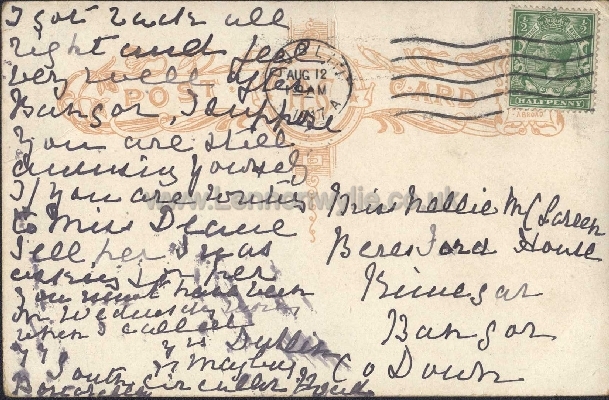 I got back all
right and feel
very well after
Bangor, I suppose
you are still
amusing yourself
If you are writing
to Miss Deane
tell her I was
asking for her
you must have been
in Wednesday
when I called
Dublin
South Circular Road
POST CARD
AUG 12
AM
HALFPENNY
www.Lennonwylie.co.uk
Miss Nellie McLareen
Beresford House
Kinegar
Bangor
Co Down